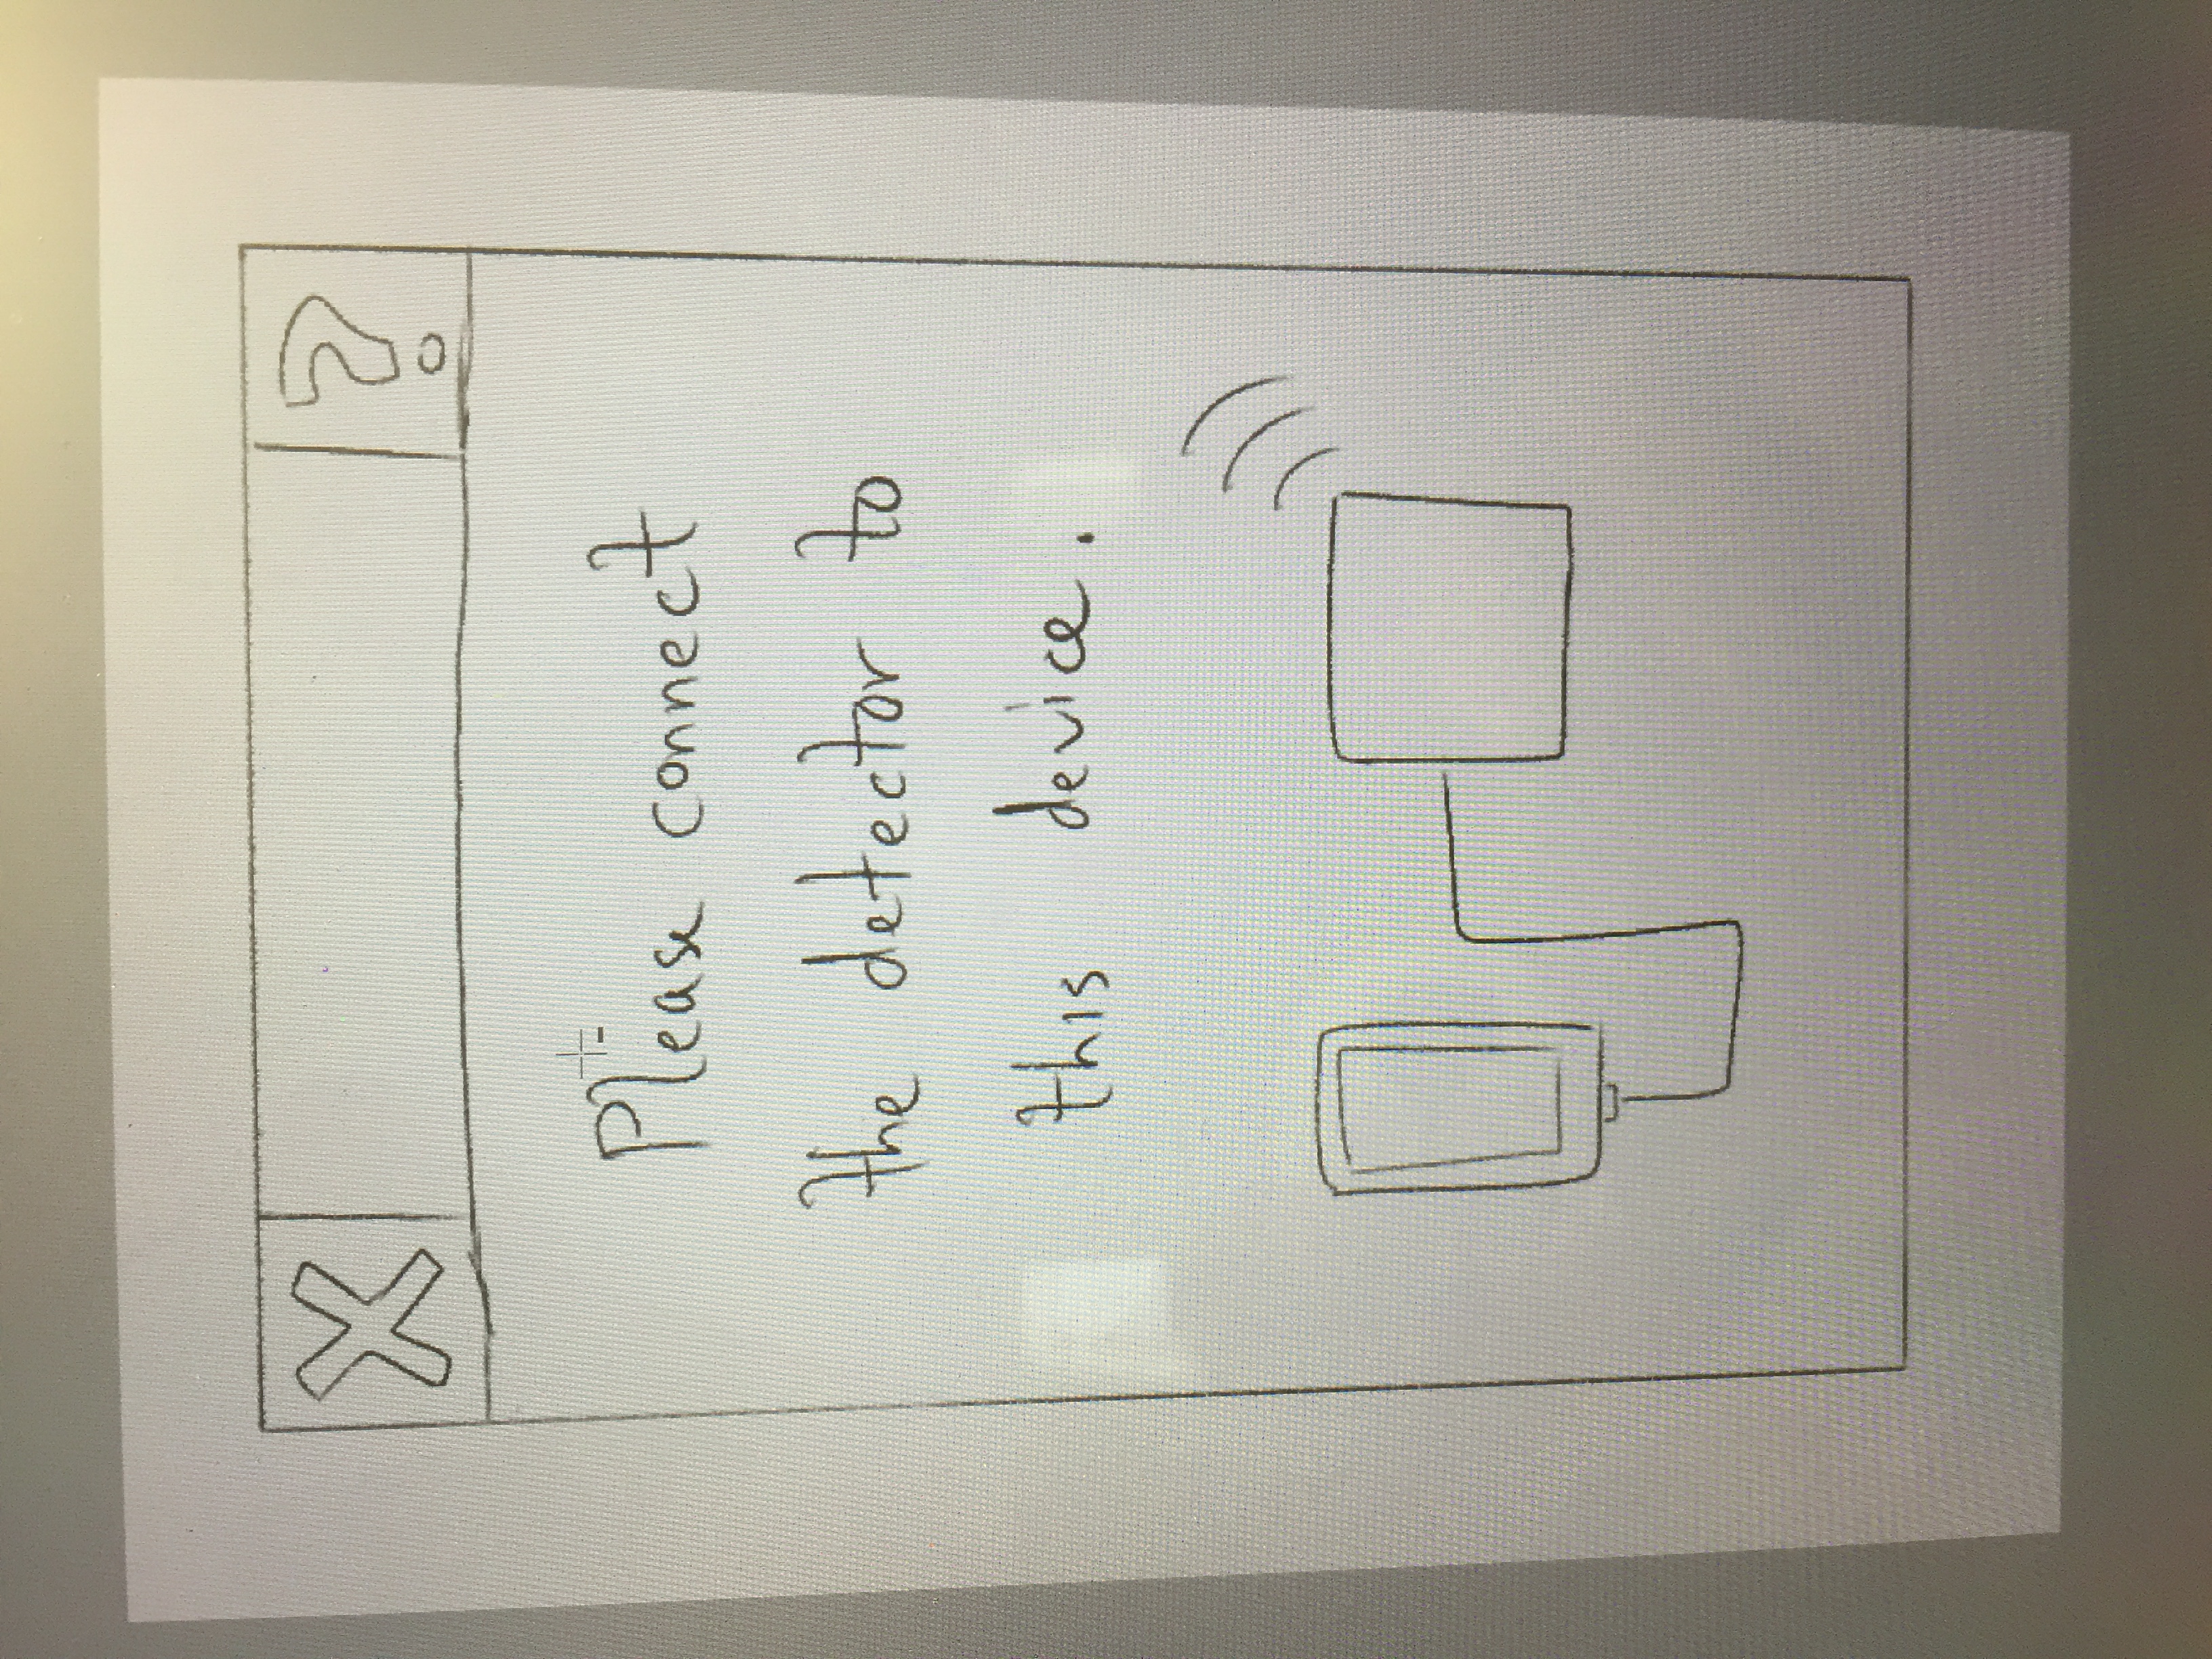 X ?
Please connect
the detector to
this device.